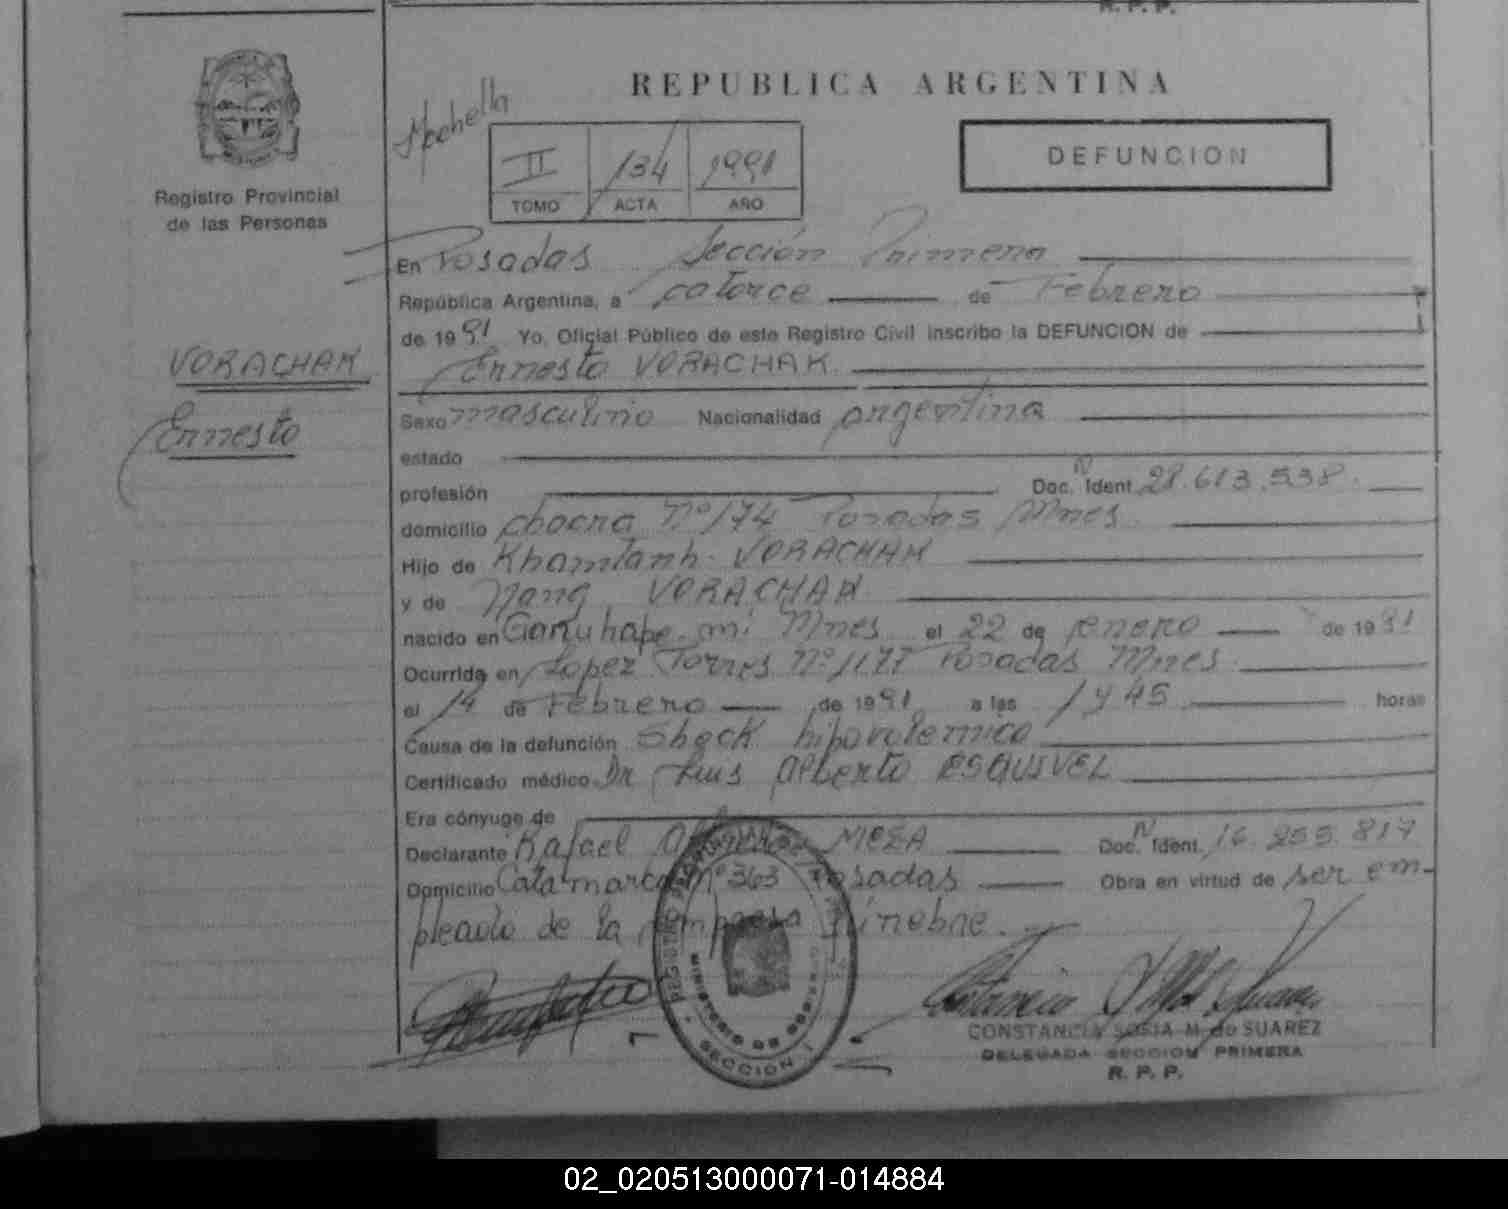 R. P. P.
REPUBLICA ARGENTINA
II 134 1991
TOMO ACTA AÑO
DEFUNCION
Registro Provincial
de las Personas
VORACHAK
Ernesto
En Posadas Sección Primera
República Argentina, a catorce de Febrero
de 1991 Yo, Oficial Público de este Registro Civil inscribo la DEFUNCION de
Ernesto VORACHAK
Sexo masculino Nacionalidad argentina
estado
profesión Doc. Ident. Nº 28.613.538.
domicilio chacra Nº 174 Posadas Mnes.
Hijo de Khamtanh VORACHAK
y de Nang VORACHAK
nacido en Garuhape-mi Mnes el 22 de enero de 1981
Ocurrida en Lopez Torres Nº 1177 Posadas Mnes.
el 14 de Febrero de 1991 a las 1 y 45 horas
Causa de la defunción Shock hipovolemico
Certificado médico Dr Luis Alberto ESQUIVEL
Era cónyuge de
Declarante Rafael MEZA Doc. Ident. Nº 16.255.817
Domicilio Catamarca Nº 363 Posadas Obra en virtud de ser em-
pleado de la empresa fúnebre.
REGISTRO PROVINCIAL DE LAS PERSONAS
MINISTERIO DE GOBIERNO
SECCION I
CONSTANCIA SOFIA M. de SUAREZ
DELEGADA SECCION PRIMERA
R. P. P.
02_020513000071-014884